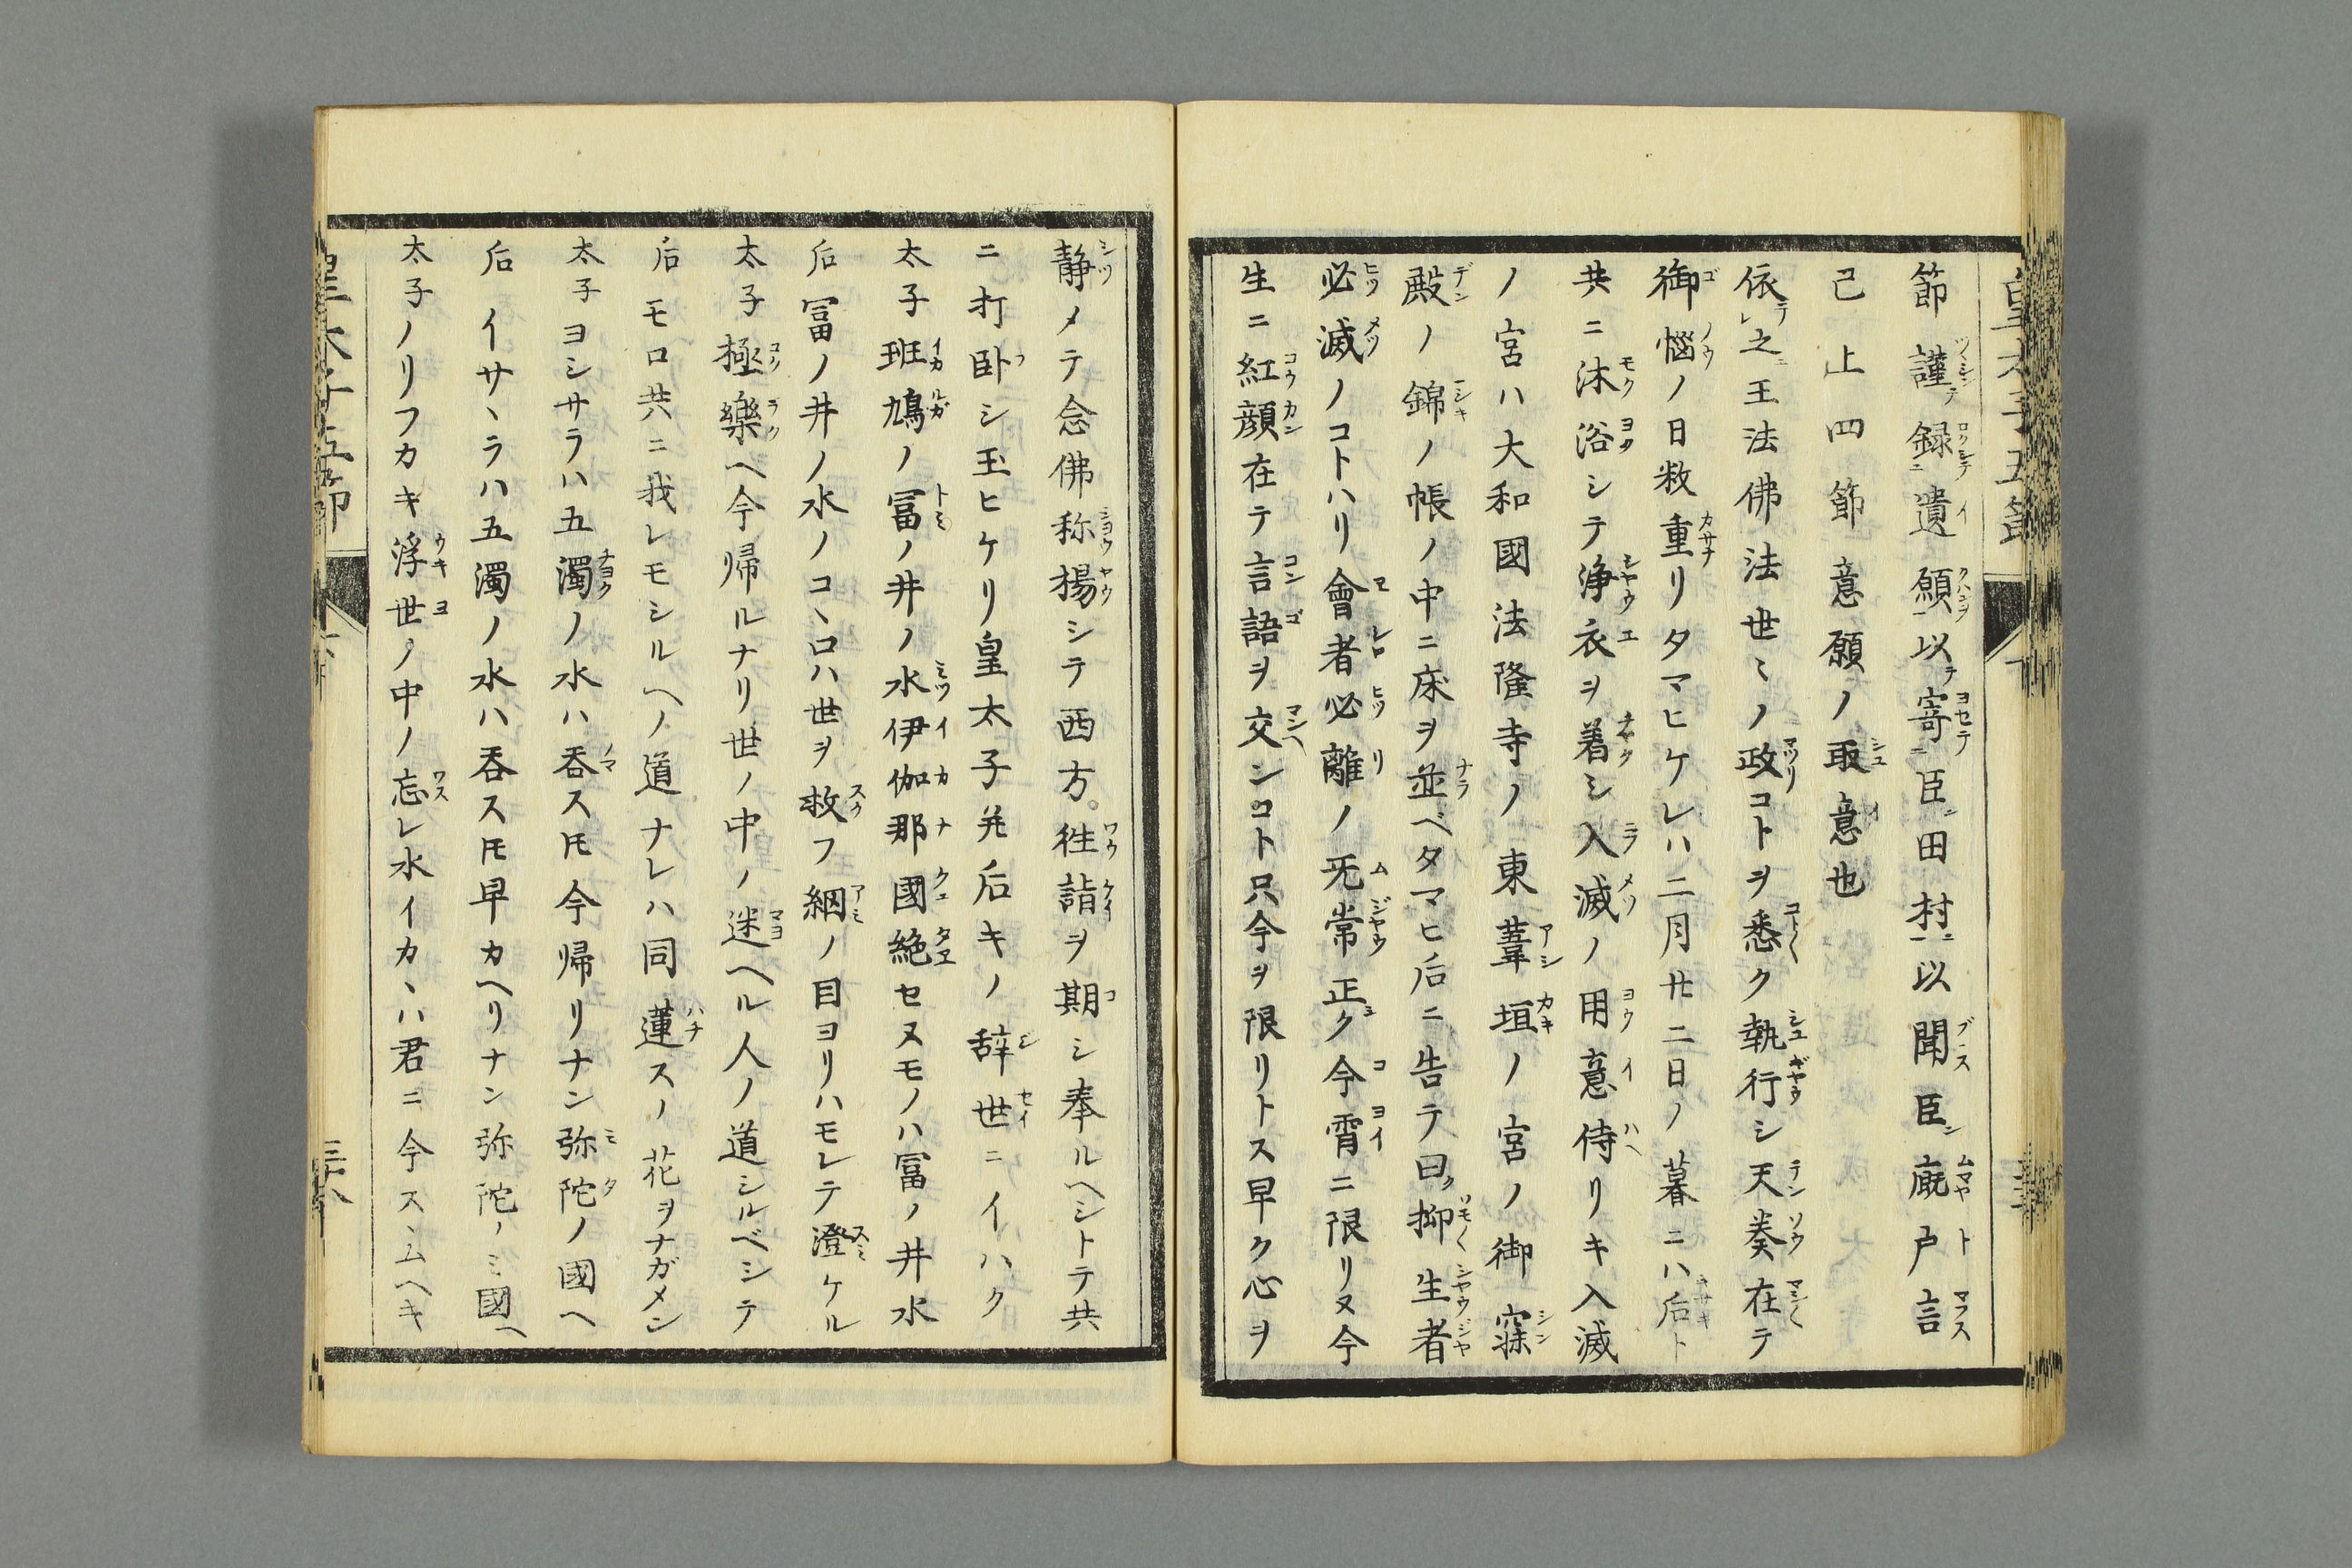 皇太子五節
節謹録遺願以寄臣田村以聞臣廐戸言
己上四節意願ノ取意也
依之王法佛法世〻ノ政コトヲ悉ク執行シ天奏在テ
御惱ノ日数重リタマヒケレハ二月廿二日ノ暮ニハ后ト
共ニ沐浴シテ浄衣ヲ着シ入滅ノ用意侍リキ入滅
ノ宮ハ大和國法隆寺ノ東葦垣ノ宮ノ御寢
殿ノ錦ノ帳ノ中ニ床ヲ並ベタマヒ后ニ告テ曰抑生者
必滅ノコトハリ會者必離ノ无常正ク今霄ニ限リヌ今
生ニ紅顔在テ言語ヲ交ンコト只今ヲ限リトス早ク心ヲ
静メテ念佛称揚シテ西方。徃詣ヲ期シ奉ルヘシトテ共
ニ打卧シ玉ヒケリ皇太子并后キノ辞世ニイハク
太子班鳩ノ冨ノ井ノ水伊伽那國絶セヌモノハ冨ノ井水
后冨ノ井ノ水ノコヽロハ世ヲ救フ網ノ目ヨリハモレテ澄ケル
太子極樂ヘ今帰ルナリ世ノ中ノ迷ヘル人ノ道シルベシテ
后モロ共ニ我レモシルヘノ道ナレハ同蓮スノ花ヲナガメン
太子ヨシサラハ五濁ノ水ハ呑スㇳモ今帰リナン弥陀ノ國ヘ
后イサヽラハ五濁ノ水ハ呑スㇳモ早カヘリナン弥陀ノミ國ヘ
太子ノリフカキ浮世ノ中ノ忘レ水イカヽハ君ニ今スヽムヘキ
皇太子五節
三十八